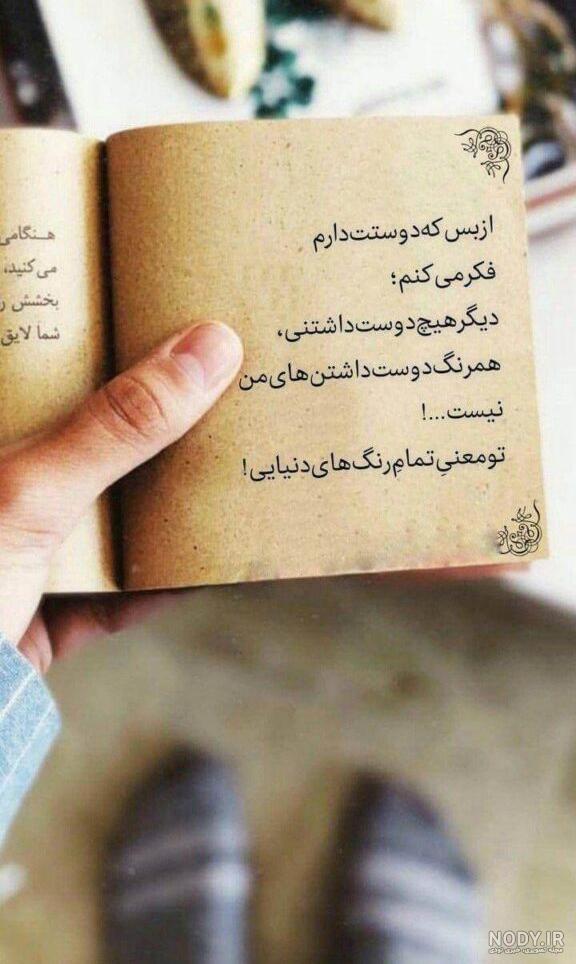 ازبس که دوستت دارم
فکر می کنم؛
دیگر هیچ دوست داشتنی،
همرنگ دوست داشتن های من
نیست...!
تو معنیِ تمامِ رنگ های دنیایی!
هـنگامی
می کنید،
بخشش
شما لایق
NODY.IR
مجله تصویری، خبری نودی